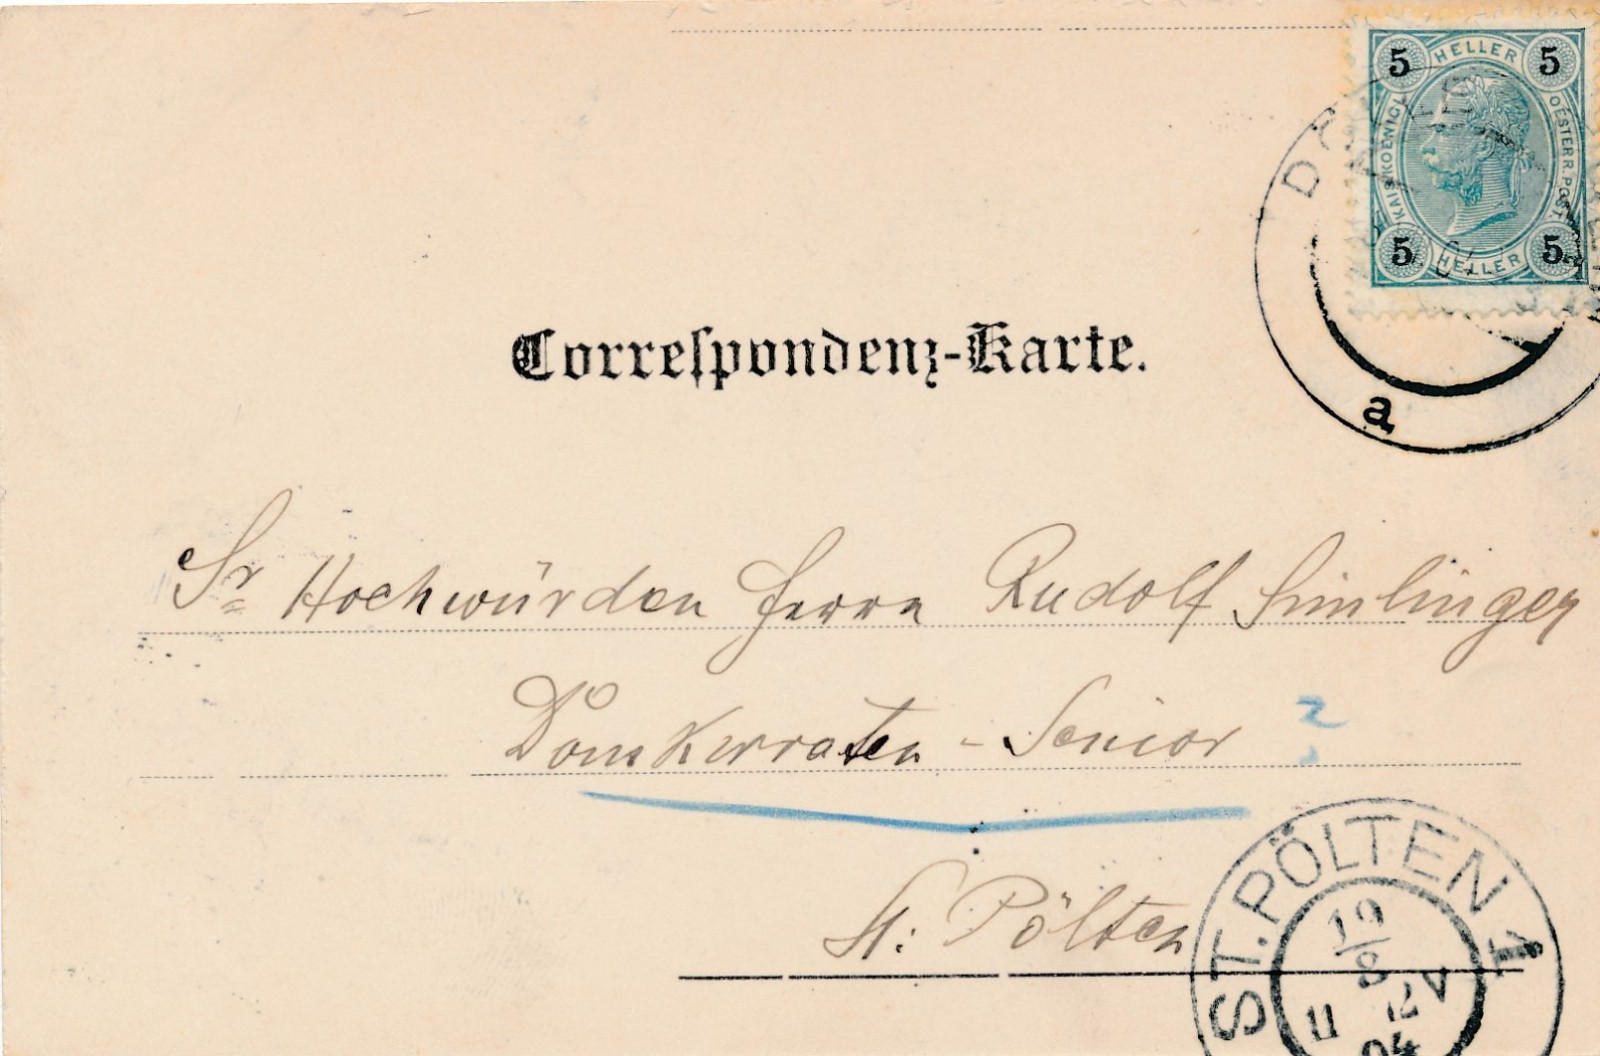 5 HELLER 5
KAIS. KOENIGL. OESTERR. POST.
5 HELLER 5
a
Correſpondenz-Karte.
Sr Hochwürden Herrn Rudolf
Domkuraten - Senior ?
St: Pölten
ST. PÖLTEN 1
19
8
11 12 V
04